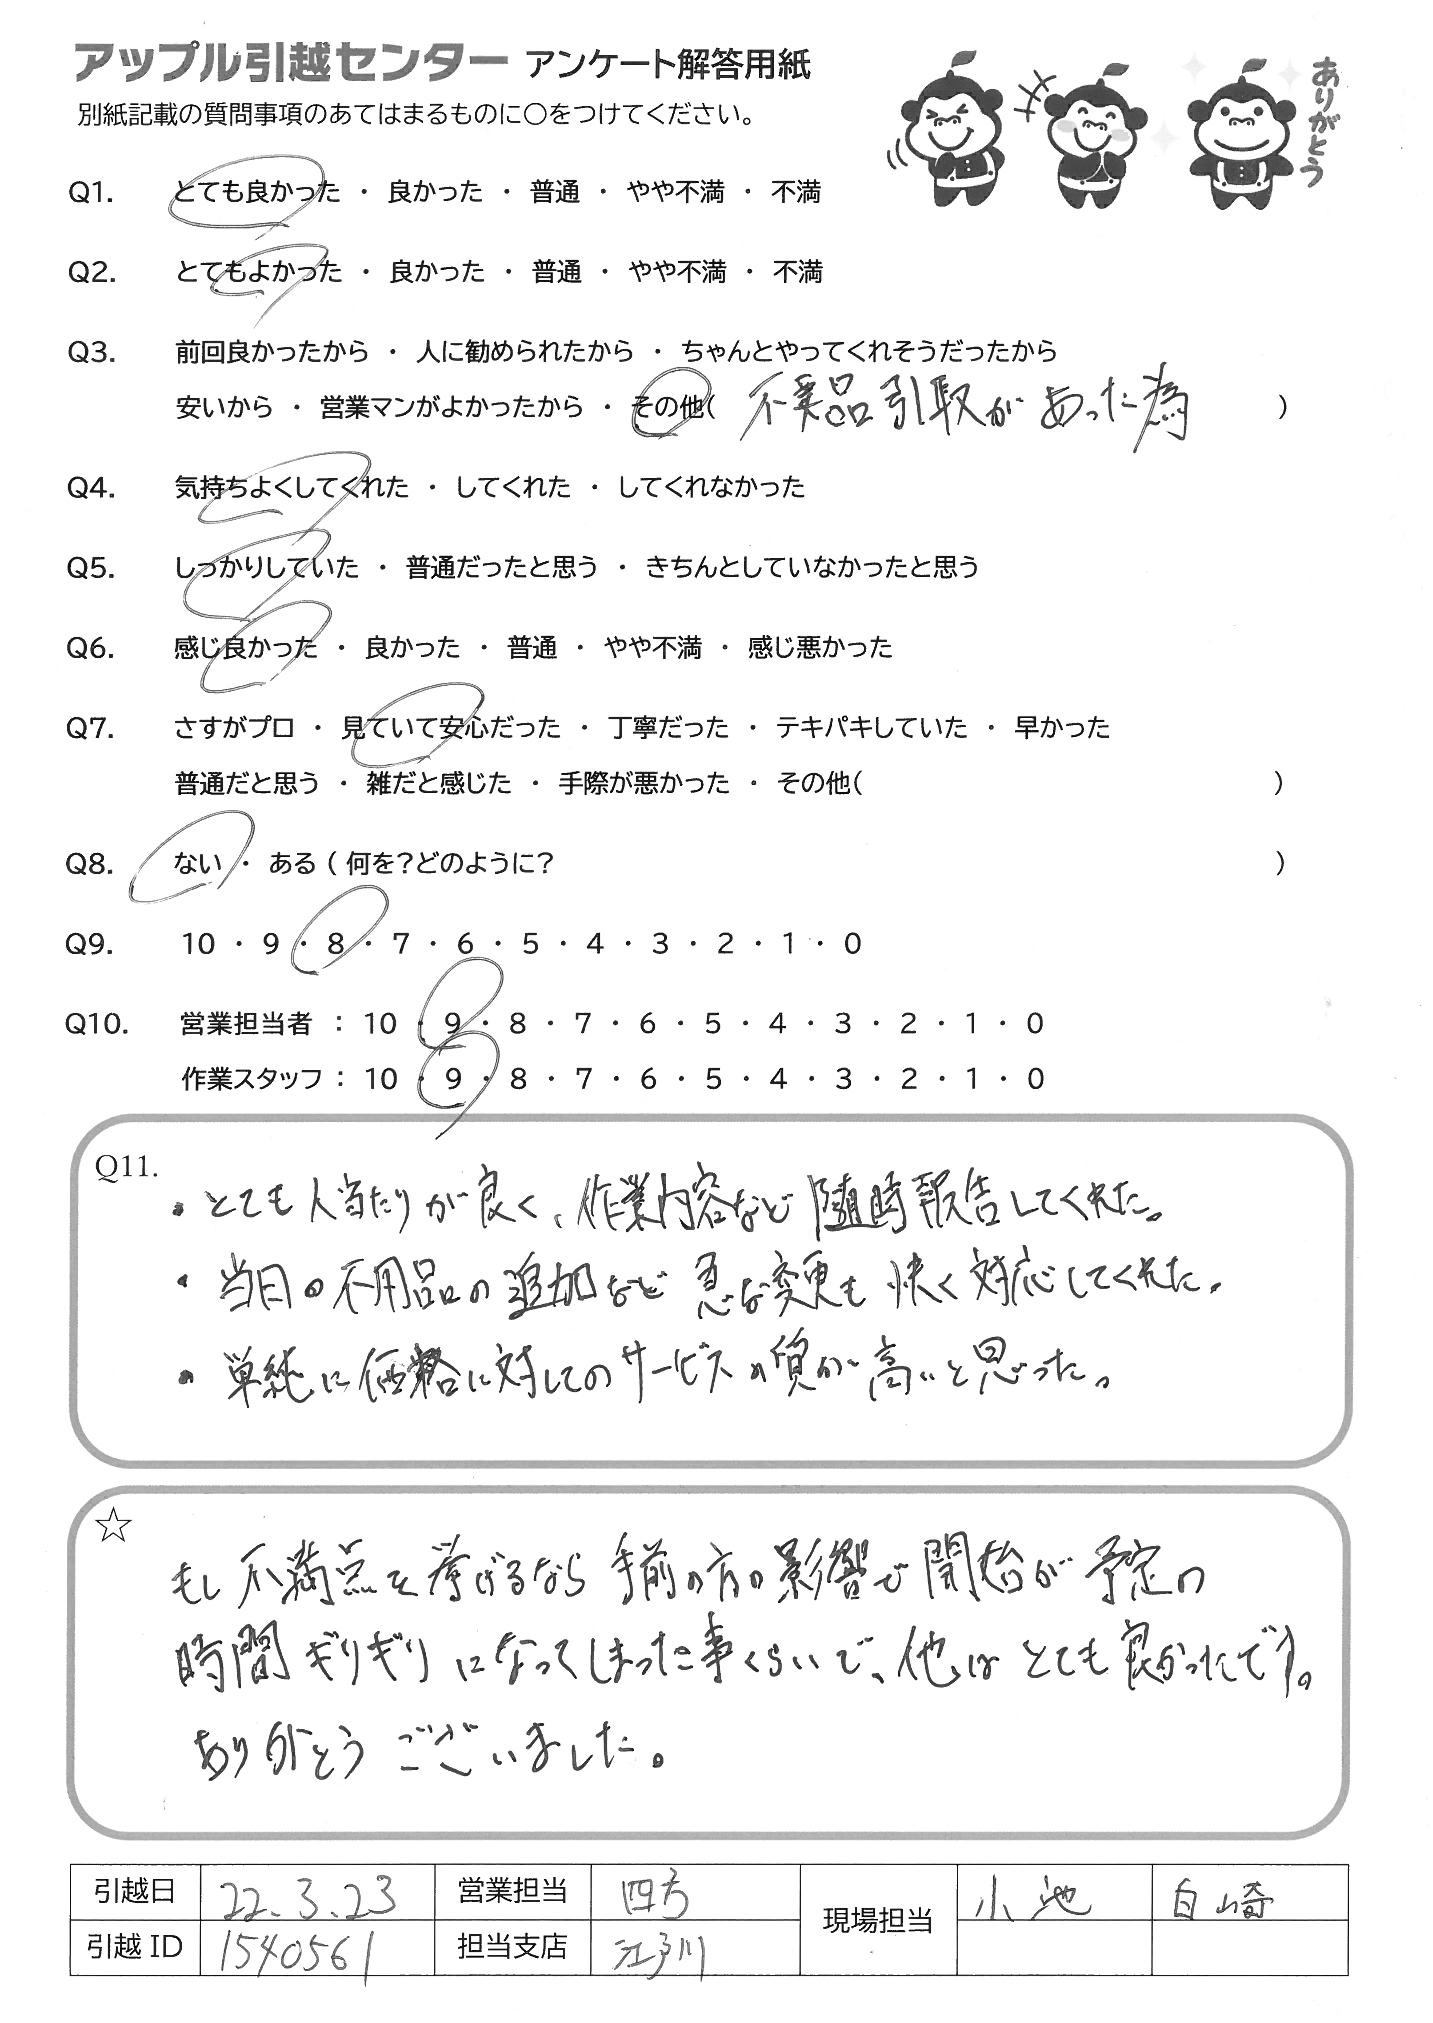 アップル引越センター アンケート解答用紙
ありがとう
別紙記載の質問事項のあてはまるものに○をつけてください。
Q1. とても良かった ・ 良かった ・ 普通 ・ やや不満 ・ 不満
Q2. とてもよかった ・ 良かった ・ 普通 ・ やや不満 ・ 不満
Q3. 前回良かったから ・ 人に勧められたから ・ ちゃんとやってくれそうだったから
安いから ・ 営業マンがよかったから ・ その他( 不業品引取があった為 )
Q4. 気持ちよくしてくれた ・ してくれた ・ してくれなかった
Q5. しっかりしていた ・ 普通だったと思う ・ きちんとしていなかったと思う
Q6. 感じ良かった ・ 良かった ・ 普通 ・ やや不満 ・ 感じ悪かった
Q7. さすがプロ ・ 見ていて安心だった ・ 丁寧だった ・ テキパキしていた ・ 早かった
普通だと思う ・ 雑だと感じた ・ 手際が悪かった ・ その他( )
Q8. ない ・ ある ( 何を？どのように？ )
Q9. 10 ・ 9 ・ 8 ・ 7 ・ 6 ・ 5 ・ 4 ・ 3 ・ 2 ・ 1 ・ 0
Q10. 営業担当者 ： 10 ・ 9 ・ 8 ・ 7 ・ 6 ・ 5 ・ 4 ・ 3 ・ 2 ・ 1 ・ 0
作業スタッフ ： 10 ・ 9 ・ 8 ・ 7 ・ 6 ・ 5 ・ 4 ・ 3 ・ 2 ・ 1 ・ 0
Q11.
・とても人当たりが良く、作業内容など随時報告してくれた。
・当日の不用品の追加など急な変更も快く対応してくれた。
・単純に価格に対してのサービスの質が高いと思った。
☆
もし不満点を挙げるなら手前の方の影響で開始が予定の
時間ギリギリになってしまった事くらいで、他はとても良かったです。
ありがとうございました。
引越日 22.3.23 営業担当 四方 現場担当 小池 白崎
引越ID 1540561 担当支店 江戸川